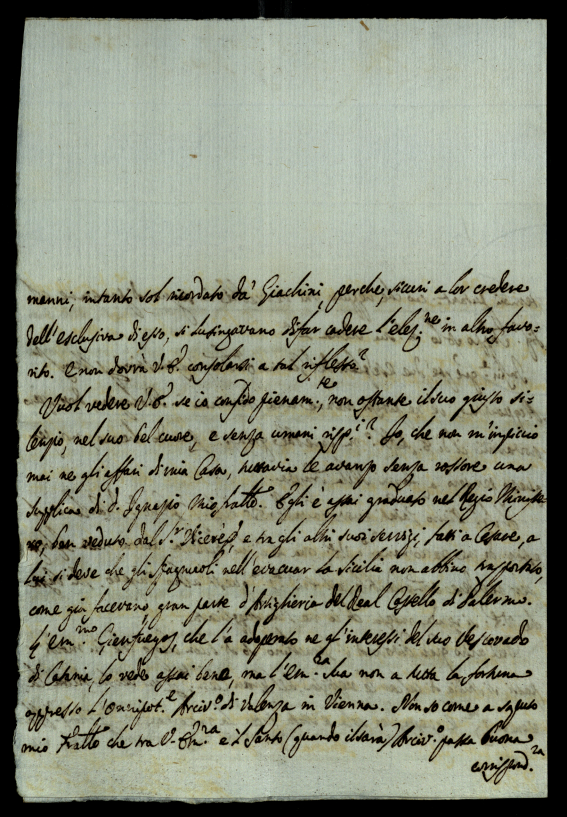 manni, intanto sol ricordato da' Giachini perche, sicuri a lor credere
dell'esclusiva di esso, si lusingavano di far cadere l'elez.ne in altro favo-
rito. E non dovrà V. E. consolarsi a tal riflesso?
Vuol vedere V. E. se io confido pienam.te, non ostante il suo giusto si-
lenzio, nel suo bel cuore, e senza umani risp.ti? Io, che non m'inficio
mai ne gli affari di mia Casa, tuttavia le avanzo senza rossore una
supplica di D. Ignazio mio fratto. Egli è assai graduato nel Regio Ministe-
ro, ben veduto dal S.r Vicerè, e tra gli altri suoi servizj, fatti a Cesare, a
lui si deve che gli Spagnuoli nell'evacuar la Sicilia non abbino trasportato,
come già facevano gran parte d'Artigheria del Real Castello di Palermo.
L'Em.mo Gienfuegos, che l'à adoperato ne gl'interessi del suo Vescovado
di Catania, lo vede assai bene, ma l'Em.za Sua non à tutta la fortuna
appresso l'Onnipot.e Arciv.o di Valenza in Vienna. Non so come à saputo
mio Fratto che tra V. Em.za e il Santo (quando il sarà) Arciv.o passa buona
corrispond.za